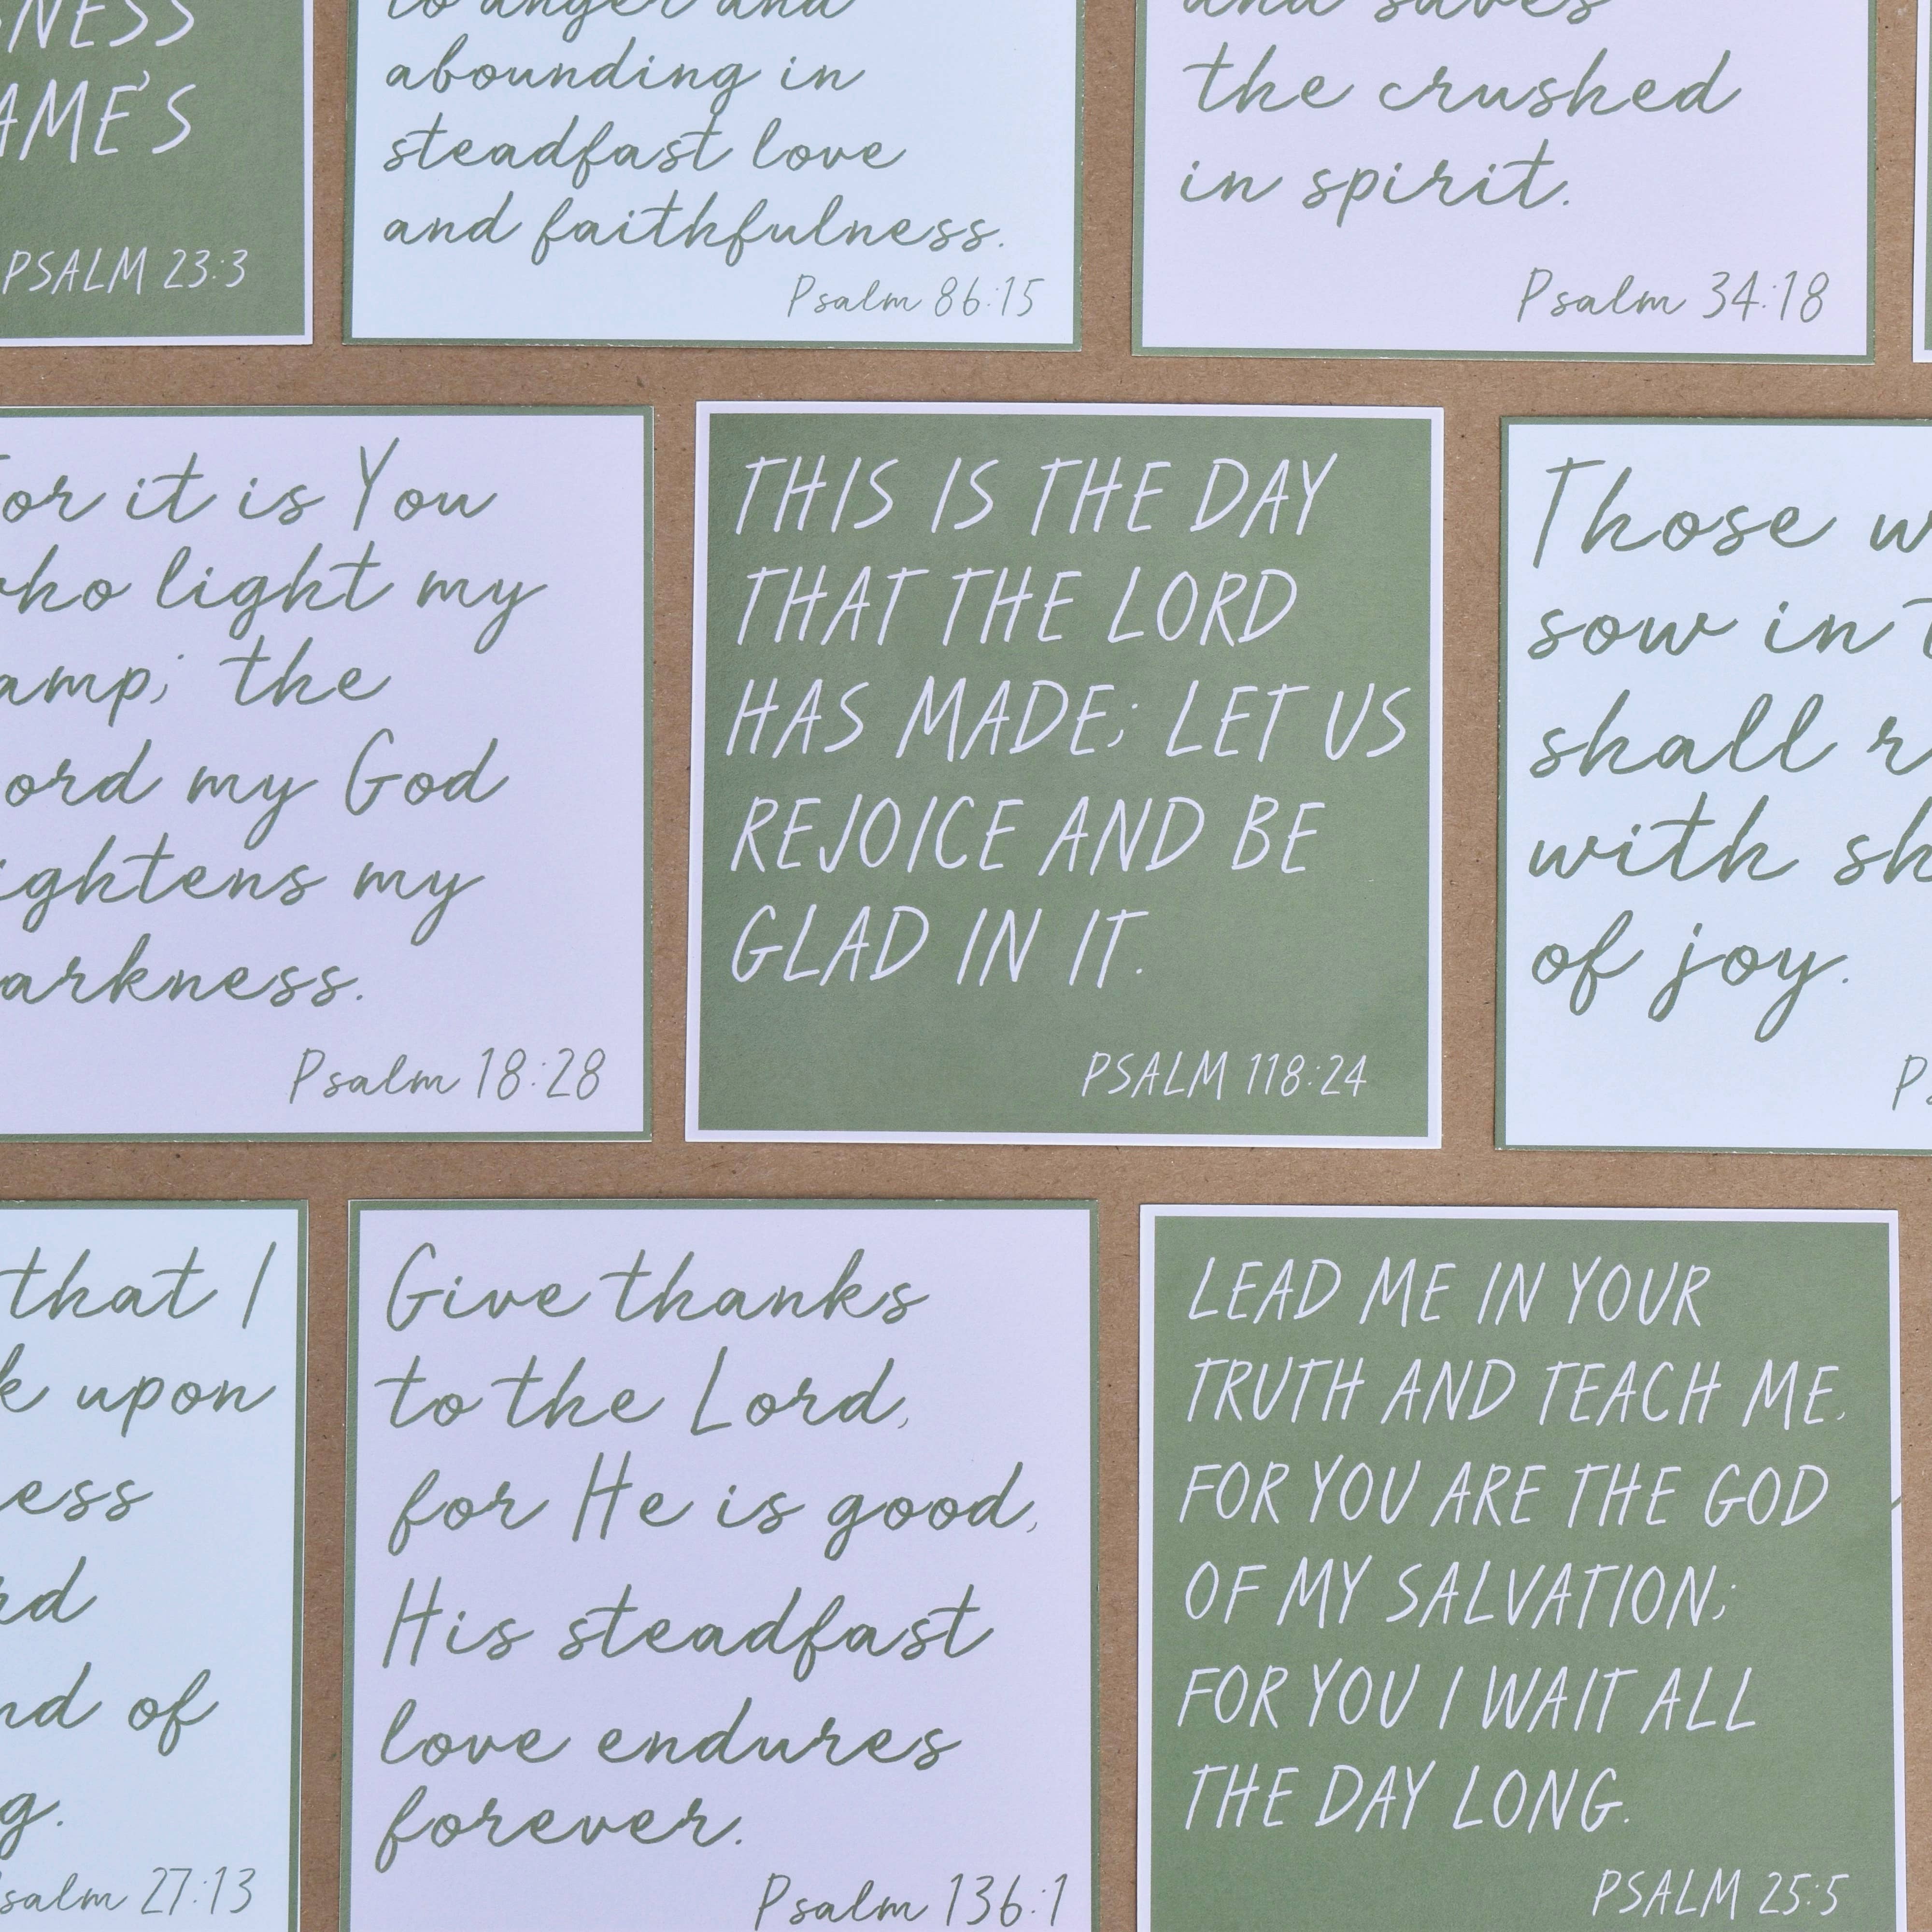 AME'S
PSALM 23:3
to anger and
abounding in
steadfast love
and faithfulness.
Psalm 86:15
and saves
the crushed
in spirit.
Psalm 34:18
for it is You
who light my
the
my God
my
Psalm 18:28
THIS IS THE DAY
THAT THE LORD
HAS MADE; LET US
REJOICE AND BE
GLAD IN IT.
PSALM 118:24
Those
sow in
shall
with
of joy.
that I
upon
of
Psalm 27:13
Give thanks
to the Lord,
for He is good,
His steadfast
love endures
forever.
Psalm 136:1
LEAD ME IN YOUR
TRUTH AND TEACH ME,
FOR YOU ARE THE GOD
OF MY SALVATION;
FOR YOU I WAIT ALL
THE DAY LONG.
PSALM 25:5